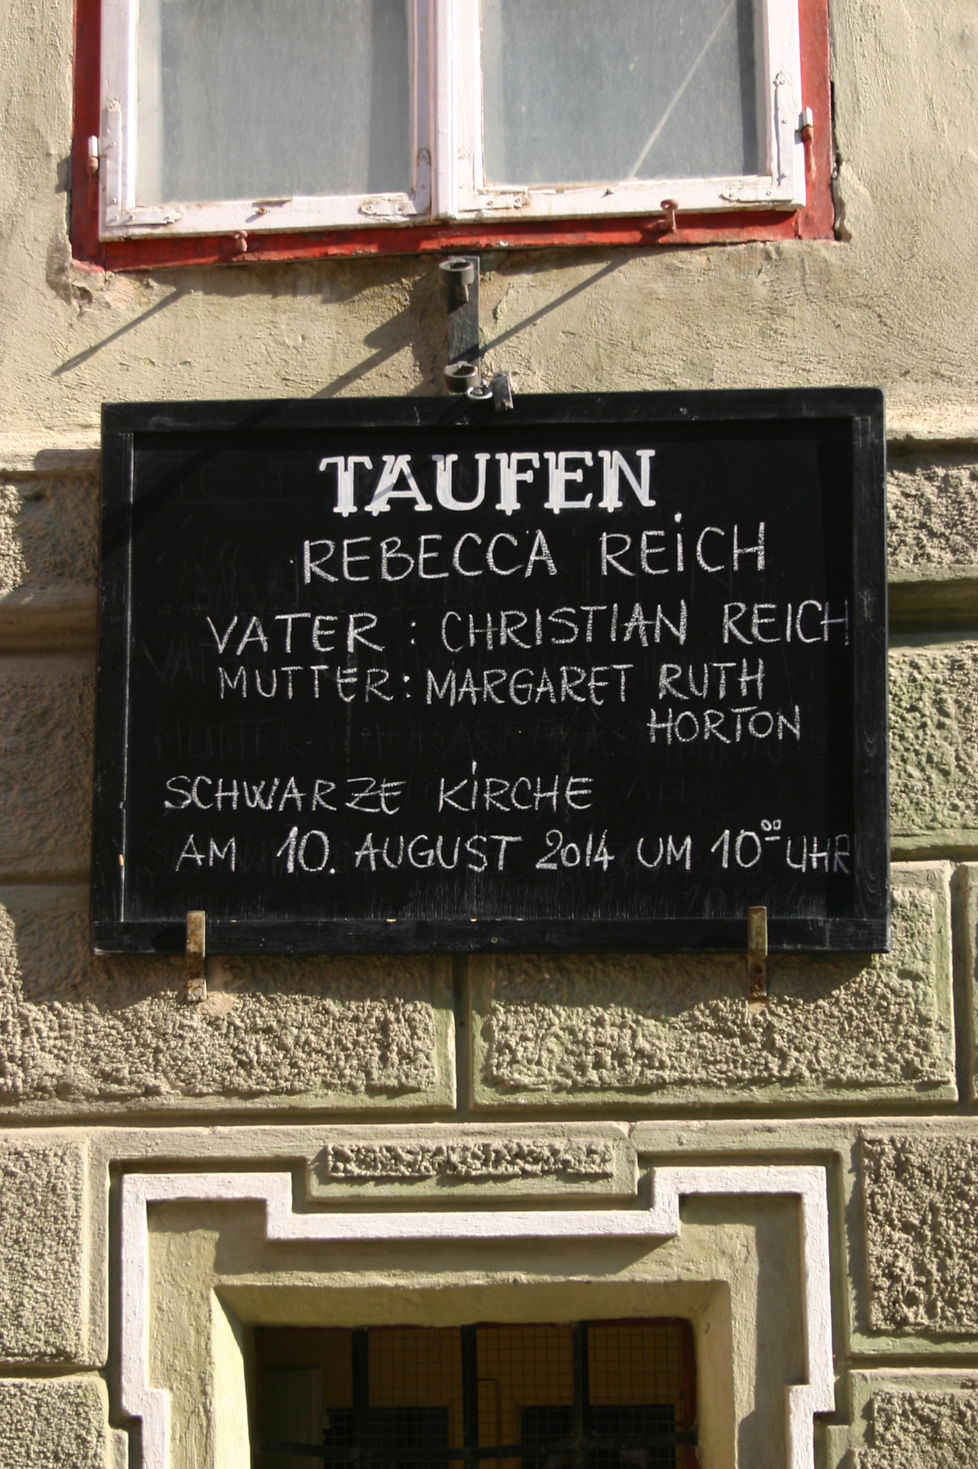 TAUFEN
REBECCA REICH
VATER : CHRISTIAN REICH
MUTTER : MARGARET RUTH
HORTON
SCHWARZE KIRCHE
AM 10. AUGUST 2014 UM 10⁰⁰ UHR